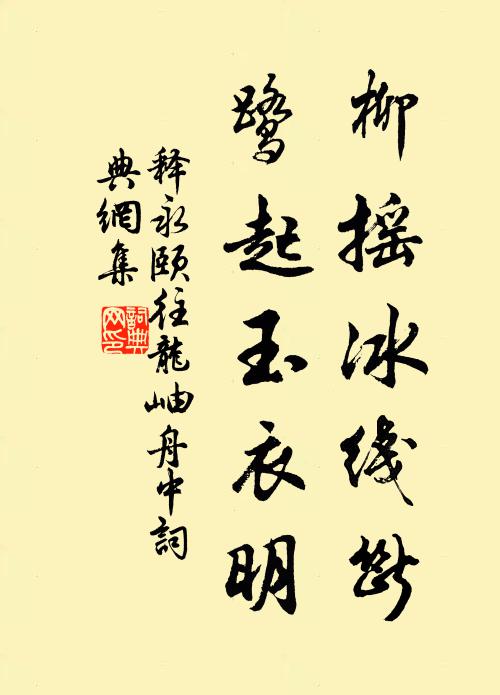 柳摇冰线断
鹭起玉衣明
释永颐往龍岫舟中詞
典網集
詞典
网印